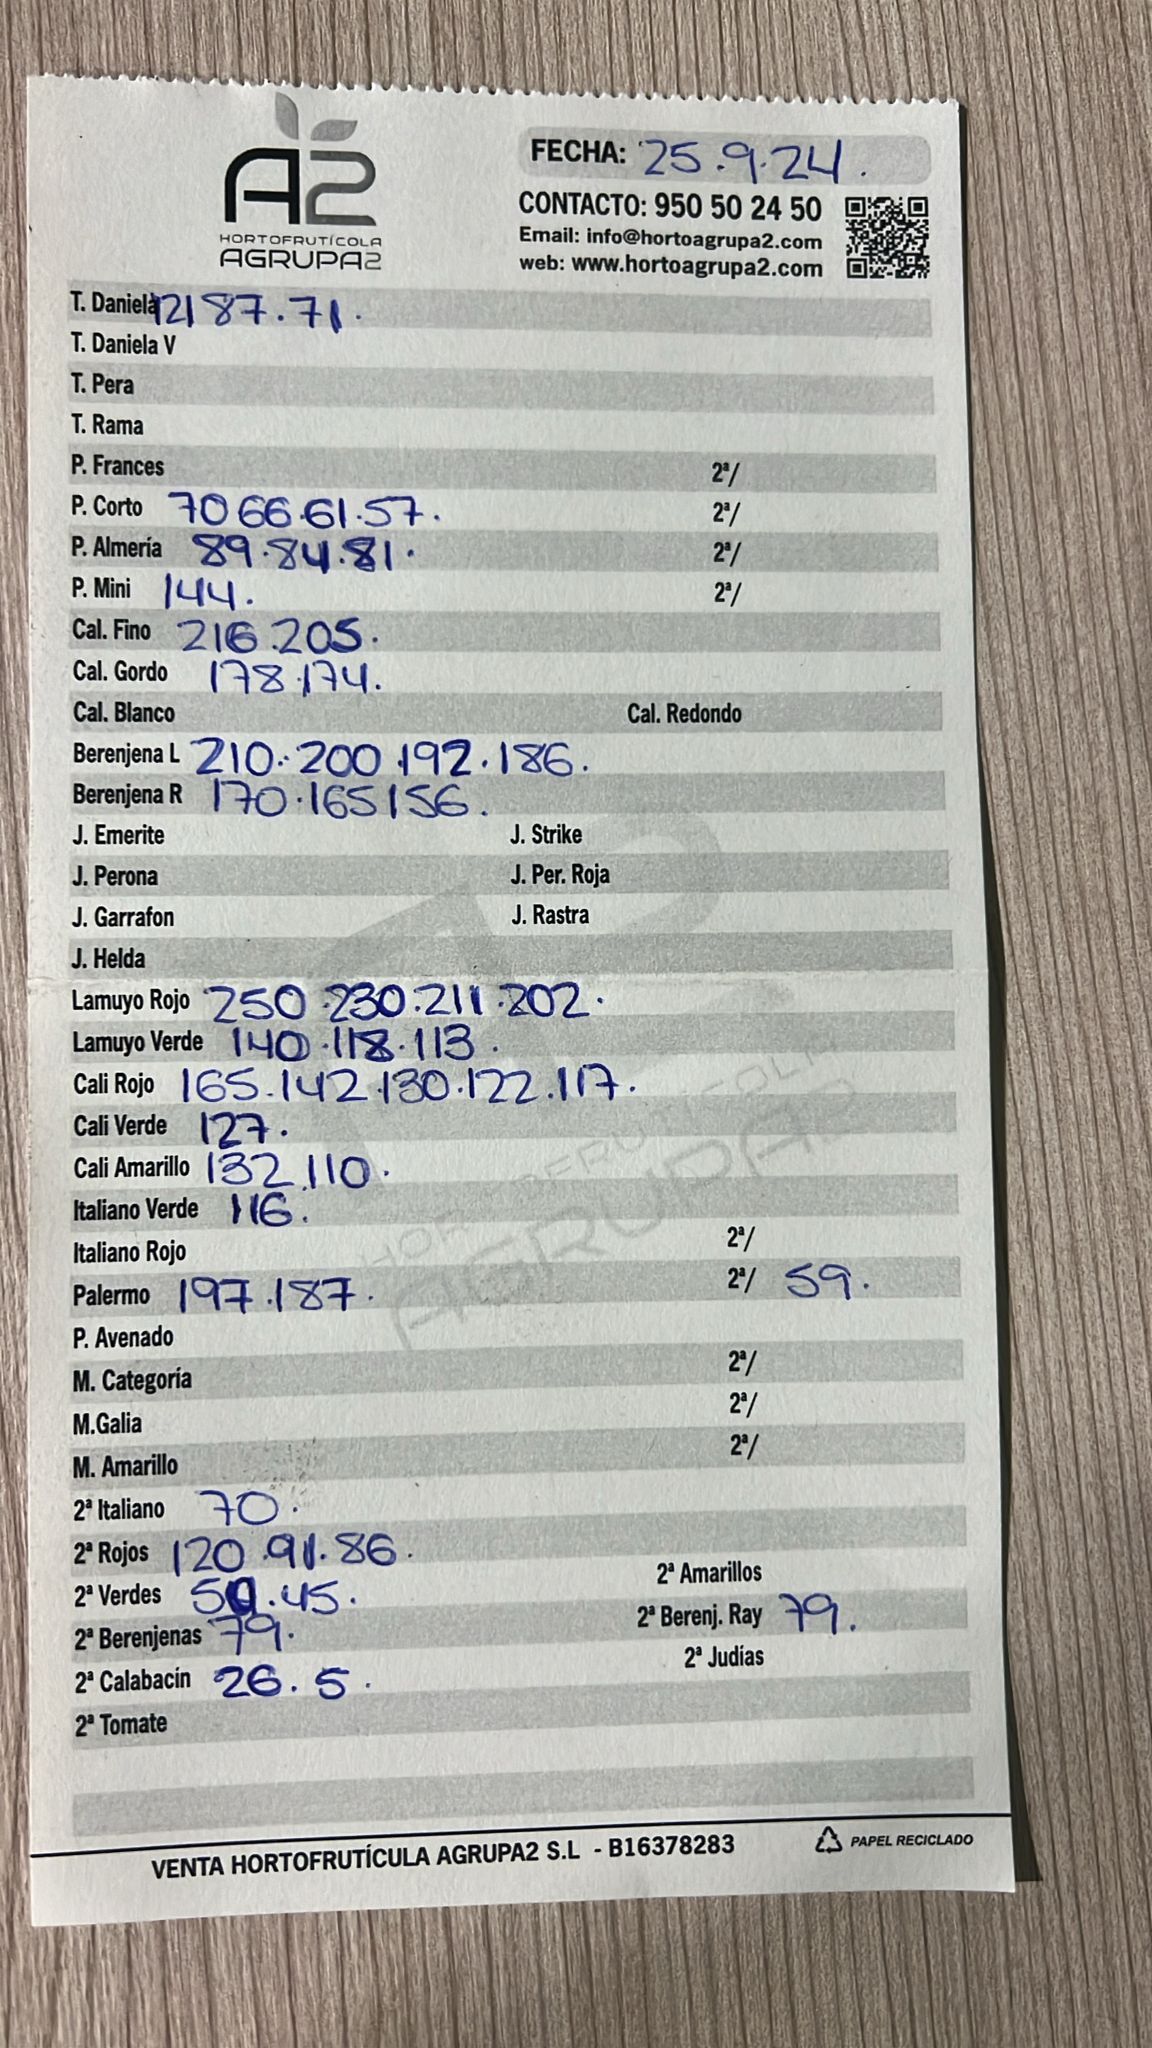 A2
HORTOFRUTÍCOLA
AGRUPA2
FECHA: 25.9.24.
CONTACTO: 950 50 24 50
Email: info@hortoagrupa2.com
web: www.hortoagrupa2.com
T. Daniela 121 87.71.
T. Daniela V
T. Pera
T. Rama
P. Frances 2ª/
P. Corto 70 66.61.57. 2ª/
P. Almería 89.84.81. 2ª/
P. Mini 144. 2ª/
Cal. Fino 216.205.
Cal. Gordo 178.174.
Cal. Blanco Cal. Redondo
Berenjena L 210.200.192.186.
Berenjena R 170.165 156.
J. Emerite J. Strike
J. Perona J. Per. Roja
J. Garrafon J. Rastra
J. Helda
Lamuyo Rojo 250.230.211.202.
Lamuyo Verde 140.118.113.
Cali Rojo 165.142.130.122.117.
Cali Verde 127.
Cali Amarillo 132.110.
Italiano Verde 116.
Italiano Rojo 2ª/
Palermo 197.187. 2ª/ 59.
P. Avenado
M. Categoría 2ª/
M.Galia 2ª/
M. Amarillo 2ª/
2ª Italiano 70.
2ª Rojos 120.91.86.
2ª Verdes 50.45. 2ª Amarillos
2ª Berenjenas 79. 2ª Berenj. Ray 79.
2ª Calabacín 26.5. 2ª Judías
2ª Tomate
VENTA HORTOFRUTÍCULA AGRUPA2 S.L - B16378283 PAPEL RECICLADO